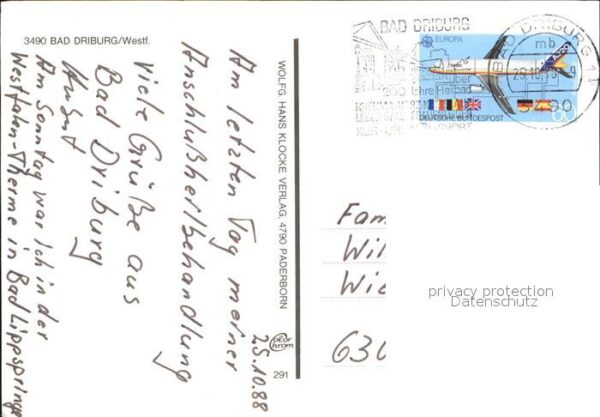 3490 BAD DRIBURG/Westf.
25.10.88
Am letzten Tag meiner
Anschlußheilbehandlung
viele Grüße aus
Bad Driburg
Am Sonntag war ich in der
Westfalen-Therme in Bad Lippspringe
WOLFG. HANS KLOCKE VERLAG, 4790 PADERBORN
color
chrom
291
BAD DRIBURG
über
200 Jahre Heilbad
BAD DRIBURG 1
mb
3490
EUROPA
A320
DEUTSCHE BUNDESPOST
60
Fam
Wil
Wie
630
privacy protection
Datenschutz